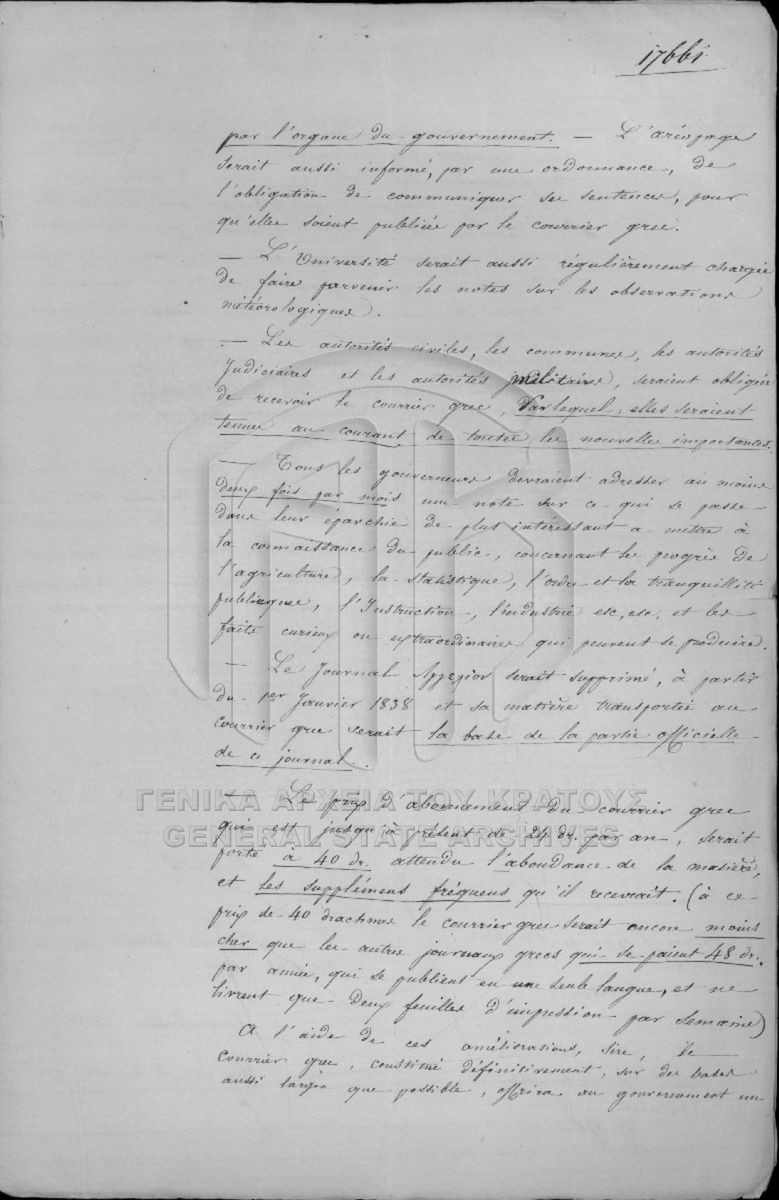 17661
par l'organe du gouvernement. — L'aréopage
serait aussi informé, par une ordonnance, de
l'obligation de communiquer ses sentences, pour
qu'elles soient publiées par le courrier grec.
— L'Université serait aussi régulièrement chargée
de faire parvenir les notes sur les observations
météorologiques.
— Les autorités civiles, les communes, les autorités
Judiciaires et les autorités militaires, seraient obligées
de recevoir le courrier grec, par lequel, elles seraient
tenues au courant de toutes les nouvelles importantes.
— Tous les gouverneurs devraient adresser au moins
deux fois par mois une note sur ce qui se passe
dans leur éparchie de plus intéressant a mettre à
la connaissance du public, concernant les progrès de
l'agriculture, la statistique, l'ordre et la tranquillité
publiques, l'Instruction, l'industrie etc, etc, et les
faits curieux ou extraordinaires qui peuvent se produire.
— Le Journal serait supprimé, à partir
du 1er Janvier 1838 et sa matière transportée au
courrier grec serait la base de la partie officielle
de ce journal.
— Le prix d'abonnement du courrier grec
qui est jusqu'à présent de 24 dr. par an, serait
porté à 40 dr. attendu l'abondance de la matière,
et les supplémens fréquens qu'il recevrait. (à ce
prix de 40 drachmes le courrier grec serait encore moins
cher que les autres journaux grecs qui se paient 48 dr.
par année, qui se publient en une seule langue, et ne
livrent que deux feuilles d'impression par semaine)
A l'aide de ces améliorations, Sire, le
Courrier grec, constitué définitivement, sur des bases
aussi larges que possible, offrira au gouvernement un
ΓΕΝΙΚΑ ΑΡΧΕΙΑ ΤΟΥ ΚΡΑΤΟΥΣ
GENERAL STATE ARCHIVES